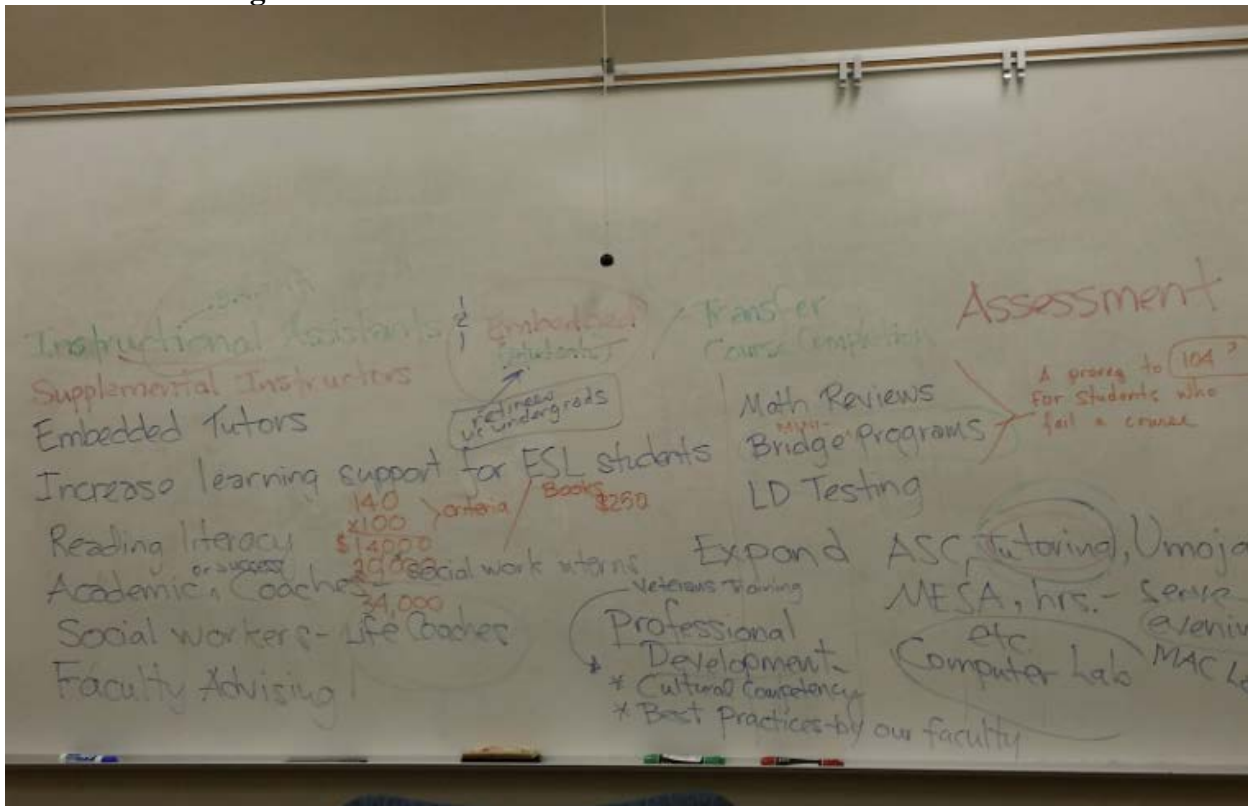 Instructional Assistants
Supplemental Instructors
Embedded Tutors
Increase learning support for ESL students
Reading literacy
or success
Academic Coaches
Social workers - Life Coaches
Faculty Advising
Embedded
(students)
retirees
UC undergrads
140
x100
$14000
34,000
criteria
Books
$250
social work interns
Transfer
Course Completion
Math Reviews
Bridge Programs
LD Testing
Assessment
A prereq to 104?
For students who
fail a course
Expand ASC, Tutoring, Umoja
MESA, hrs. - serve
etc
Computer Lab
MAC
Veterans Training
Professional
Development
* Cultural Competency
* Best Practices-by our faculty